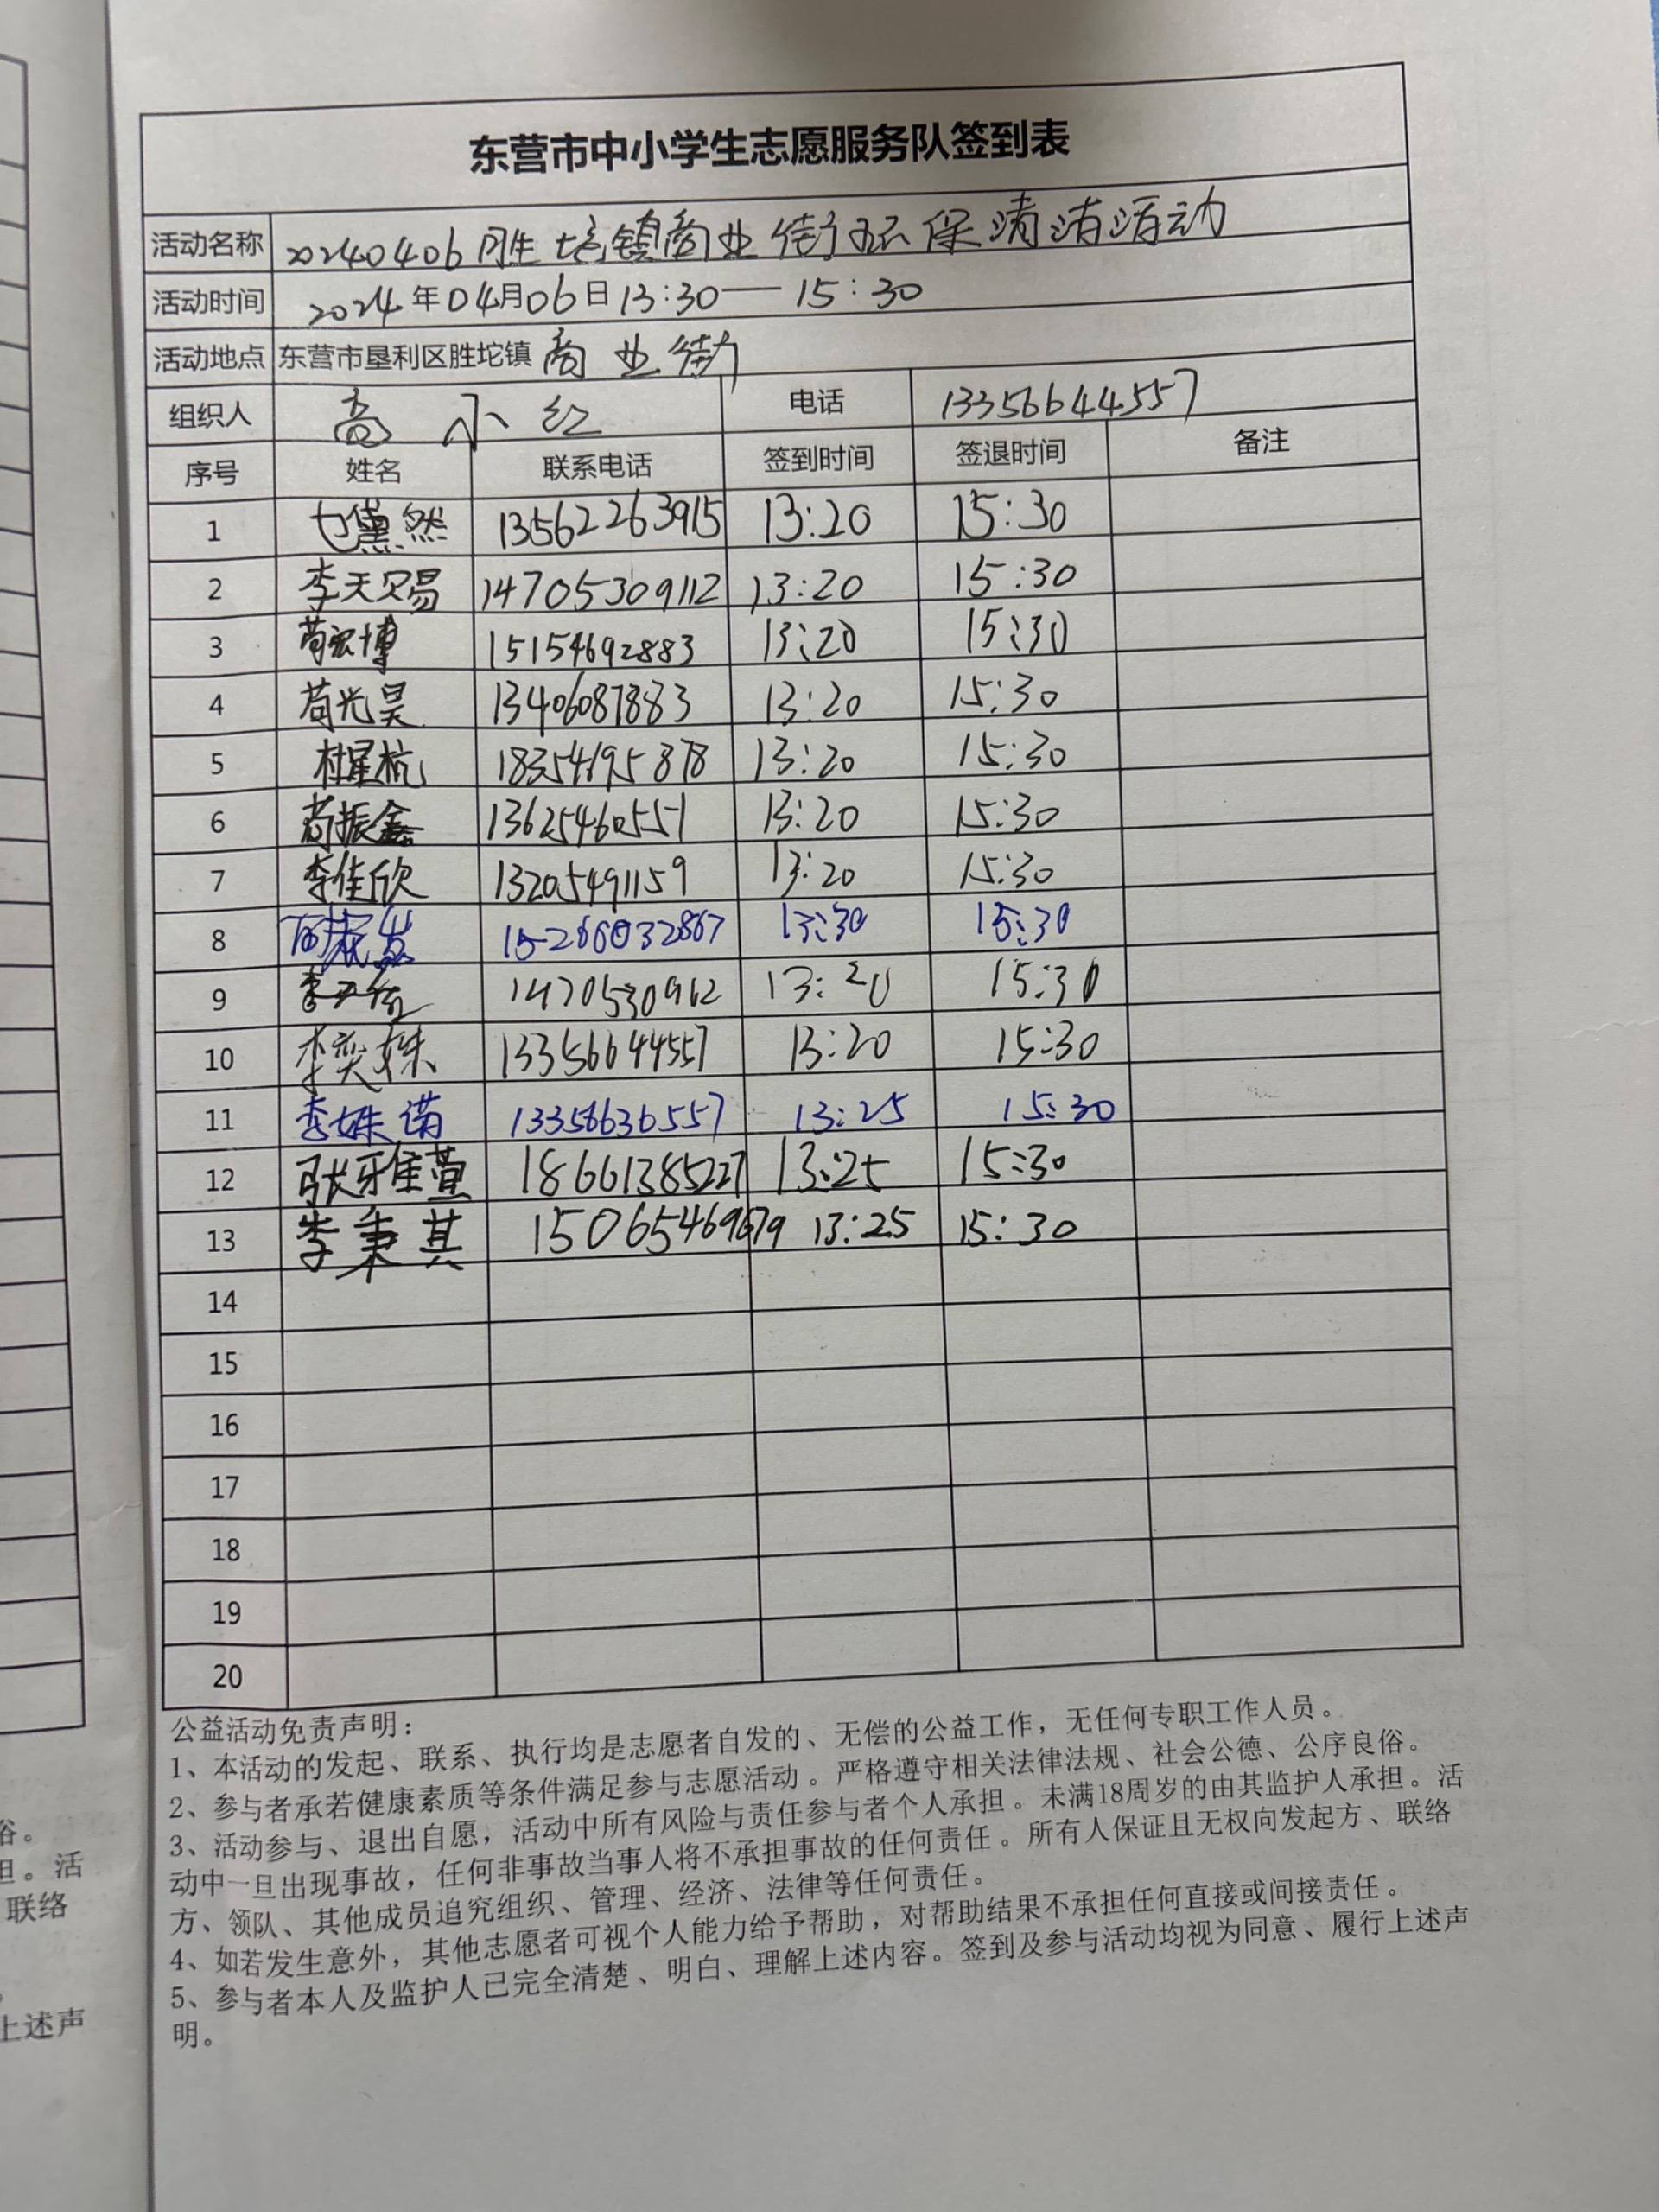 东营市中小学生志愿服务队签到表
活动名称 20240406胜坨镇商业街环保清洁活动
活动时间 2024年04月06日13:30——15:30
活动地点 东营市垦利区胜坨镇 商业街
组织人 高小红 电话 13356644557
序号 姓名 联系电话 签到时间 签退时间 备注
1 然 13562263915 13:20 15:30
2 李天赐 14705309112 13:20 15:30
3 苟宏博 15154692883 13:20 15:30
4 苟光昊 13406087883 13:20 15:30
5 杜星杭 18354695878 13:20 15:30
6 苟振鑫 13625460551 13:20 15:30
7 李佳欣 13205491159 13:20 15:30
8 13:30 15:30
9 李 13:20 15:30
10 李奕姝 13356644557 13:20 15:30
11 李姝诺 13356636557 13:25 15:30
12 张雅萱 18661385227 13:25 15:30
13 李秉其 15065469679 13:25 15:30
14
15
16
17
18
19
20
公益活动免责声明：
1、本活动的发起、联系、执行均是志愿者自发的、无偿的公益工作，无任何专职工作人员。
2、参与者承若健康素质等条件满足参与志愿活动。严格遵守相关法律法规、社会公德、公序良俗。
3、活动参与、退出自愿，活动中所有风险与责任参与者个人承担。未满18周岁的由其监护人承担。活
动中一旦出现事故，任何非事故当事人将不承担事故的任何责任。所有人保证且无权向发起方、联络
方、领队、其他成员追究组织、管理、经济、法律等任何责任。
4、如若发生意外，其他志愿者可视个人能力给予帮助，对帮助结果不承担任何直接或间接责任。
5、参与者本人及监护人已完全清楚、明白、理解上述内容。签到及参与活动均视为同意、履行上述声
明。
俗。
担。活
联络
上述声